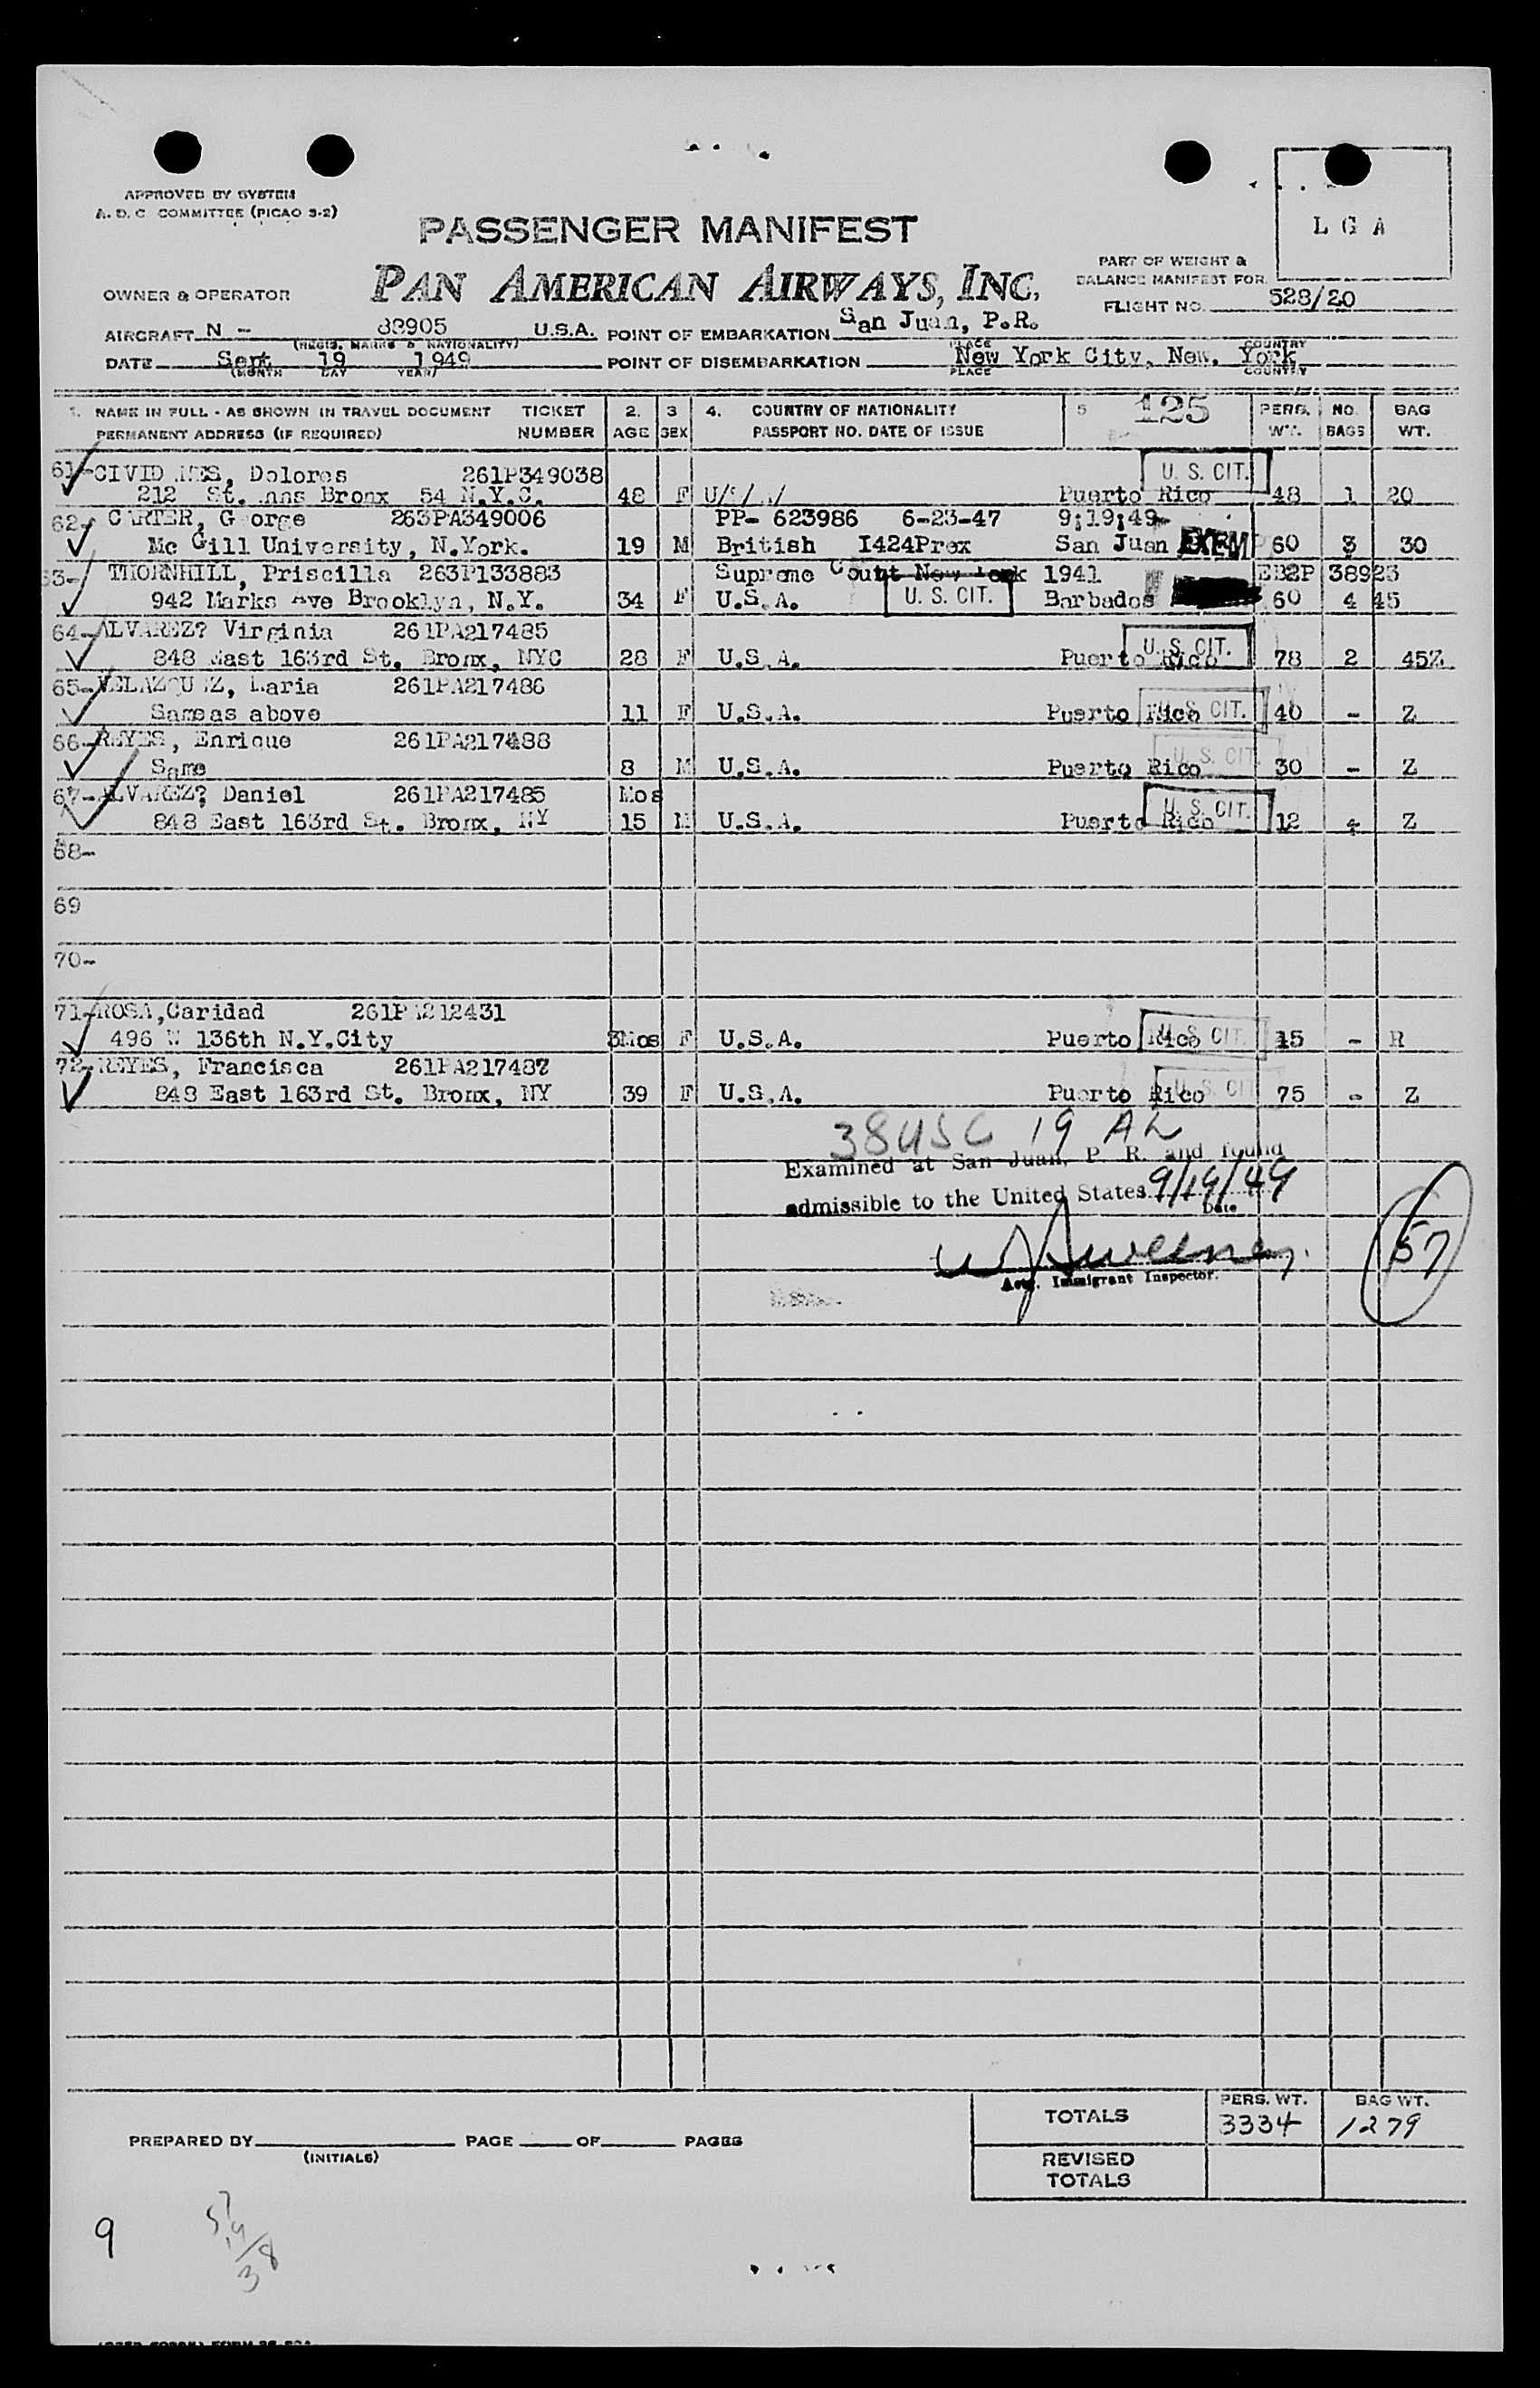 APPROVED BY SYSTEM
A. D. C COMMITTEE (PICAO 3-2)
PASSENGER MANIFEST
L G A
PART OF WEIGHT &
BALANCE MANIFEST FOR
OWNER & OPERATOR PAN AMERICAN AIRWAYS, INC.
FLIGHT NO. 528/20
AIRCRAFT N - 88905 U.S.A. POINT OF EMBARKATION San Juan, P.R.
(REGIS. MARKS & NATIONALITY) PLACE COUNTRY
DATE Sept 19 1949 POINT OF DISEMBARKATION New York City, New. York
(MONTH DAY YEAR) PLACE COUNTRY
1. NAME IN FULL - AS SHOWN IN TRAVEL DOCUMENT TICKET 2. 3 4. COUNTRY OF NATIONALITY 5 125 PERS. NO. BAG
PERMANENT ADDRESS (IF REQUIRED) NUMBER AGE SEX PASSPORT NO. DATE OF ISSUE WT. BAGS WT.
61- Dolores 261P349038 U. S. CIT.
212 St. Bronx 54 N.Y.C. 48 F Puerto Rico 48 1 20
62- CARTER, G orge 263PA349006 PP- 623986 6-23-47 9;19;49
Mc Gill University, N.York. 19 M British I424Prex San Juan EXEMP 60 3 30
63- THORNHILL, Priscilla 263P133883 Supreme Count New York 1941 38923
942 Marks Ave Brooklyn, N.Y. 34 F U.S.A. U. S. CIT. Barbados 60 4 45
64- ALVAREZ? Virginia 261PA217485
848 East 163rd St. Bronx, NYC 28 F U.S.A. Puerto Rico U. S. CIT. 78 2 45Z
65- VELAZQU Z, Maria 261PA217486
Same as above 11 F U.S.A. Puerto Rico U. S. CIT. 40 - Z
66- REYES, Enrique 261PA217488
Same 8 M U.S.A. Puerto Rico U. S. CIT. 30 - Z
67- ALVAREZ? Daniel 261PA217485 Mos
848 East 163rd St. Bronx, NY 15 M U.S.A. Puerto Rico U. S. CIT. 12 Z
68-
69
70-
71- ROSA, Caridad 261PA212431
496 W 136th N.Y.City 3Mos F U.S.A. Puerto Rico U. S. CIT. 15 - R
72- REYES, Francisca 261PA217487
848 East 163rd St. Bronx, NY 39 F U.S.A. Puerto Rico U. S. CIT 75 - Z
38 USC 19 AL
Examined at San Juan, P. R. and found
admissible to the United States 9/19/49
Date
W J Sweeney
Actg. Immigrant Inspector.
57
TOTALS PERS. WT. 3334 BAG WT. 1279
PREPARED BY PAGE OF PAGES
(INITIALS)
REVISED
TOTALS
9
57
19/38